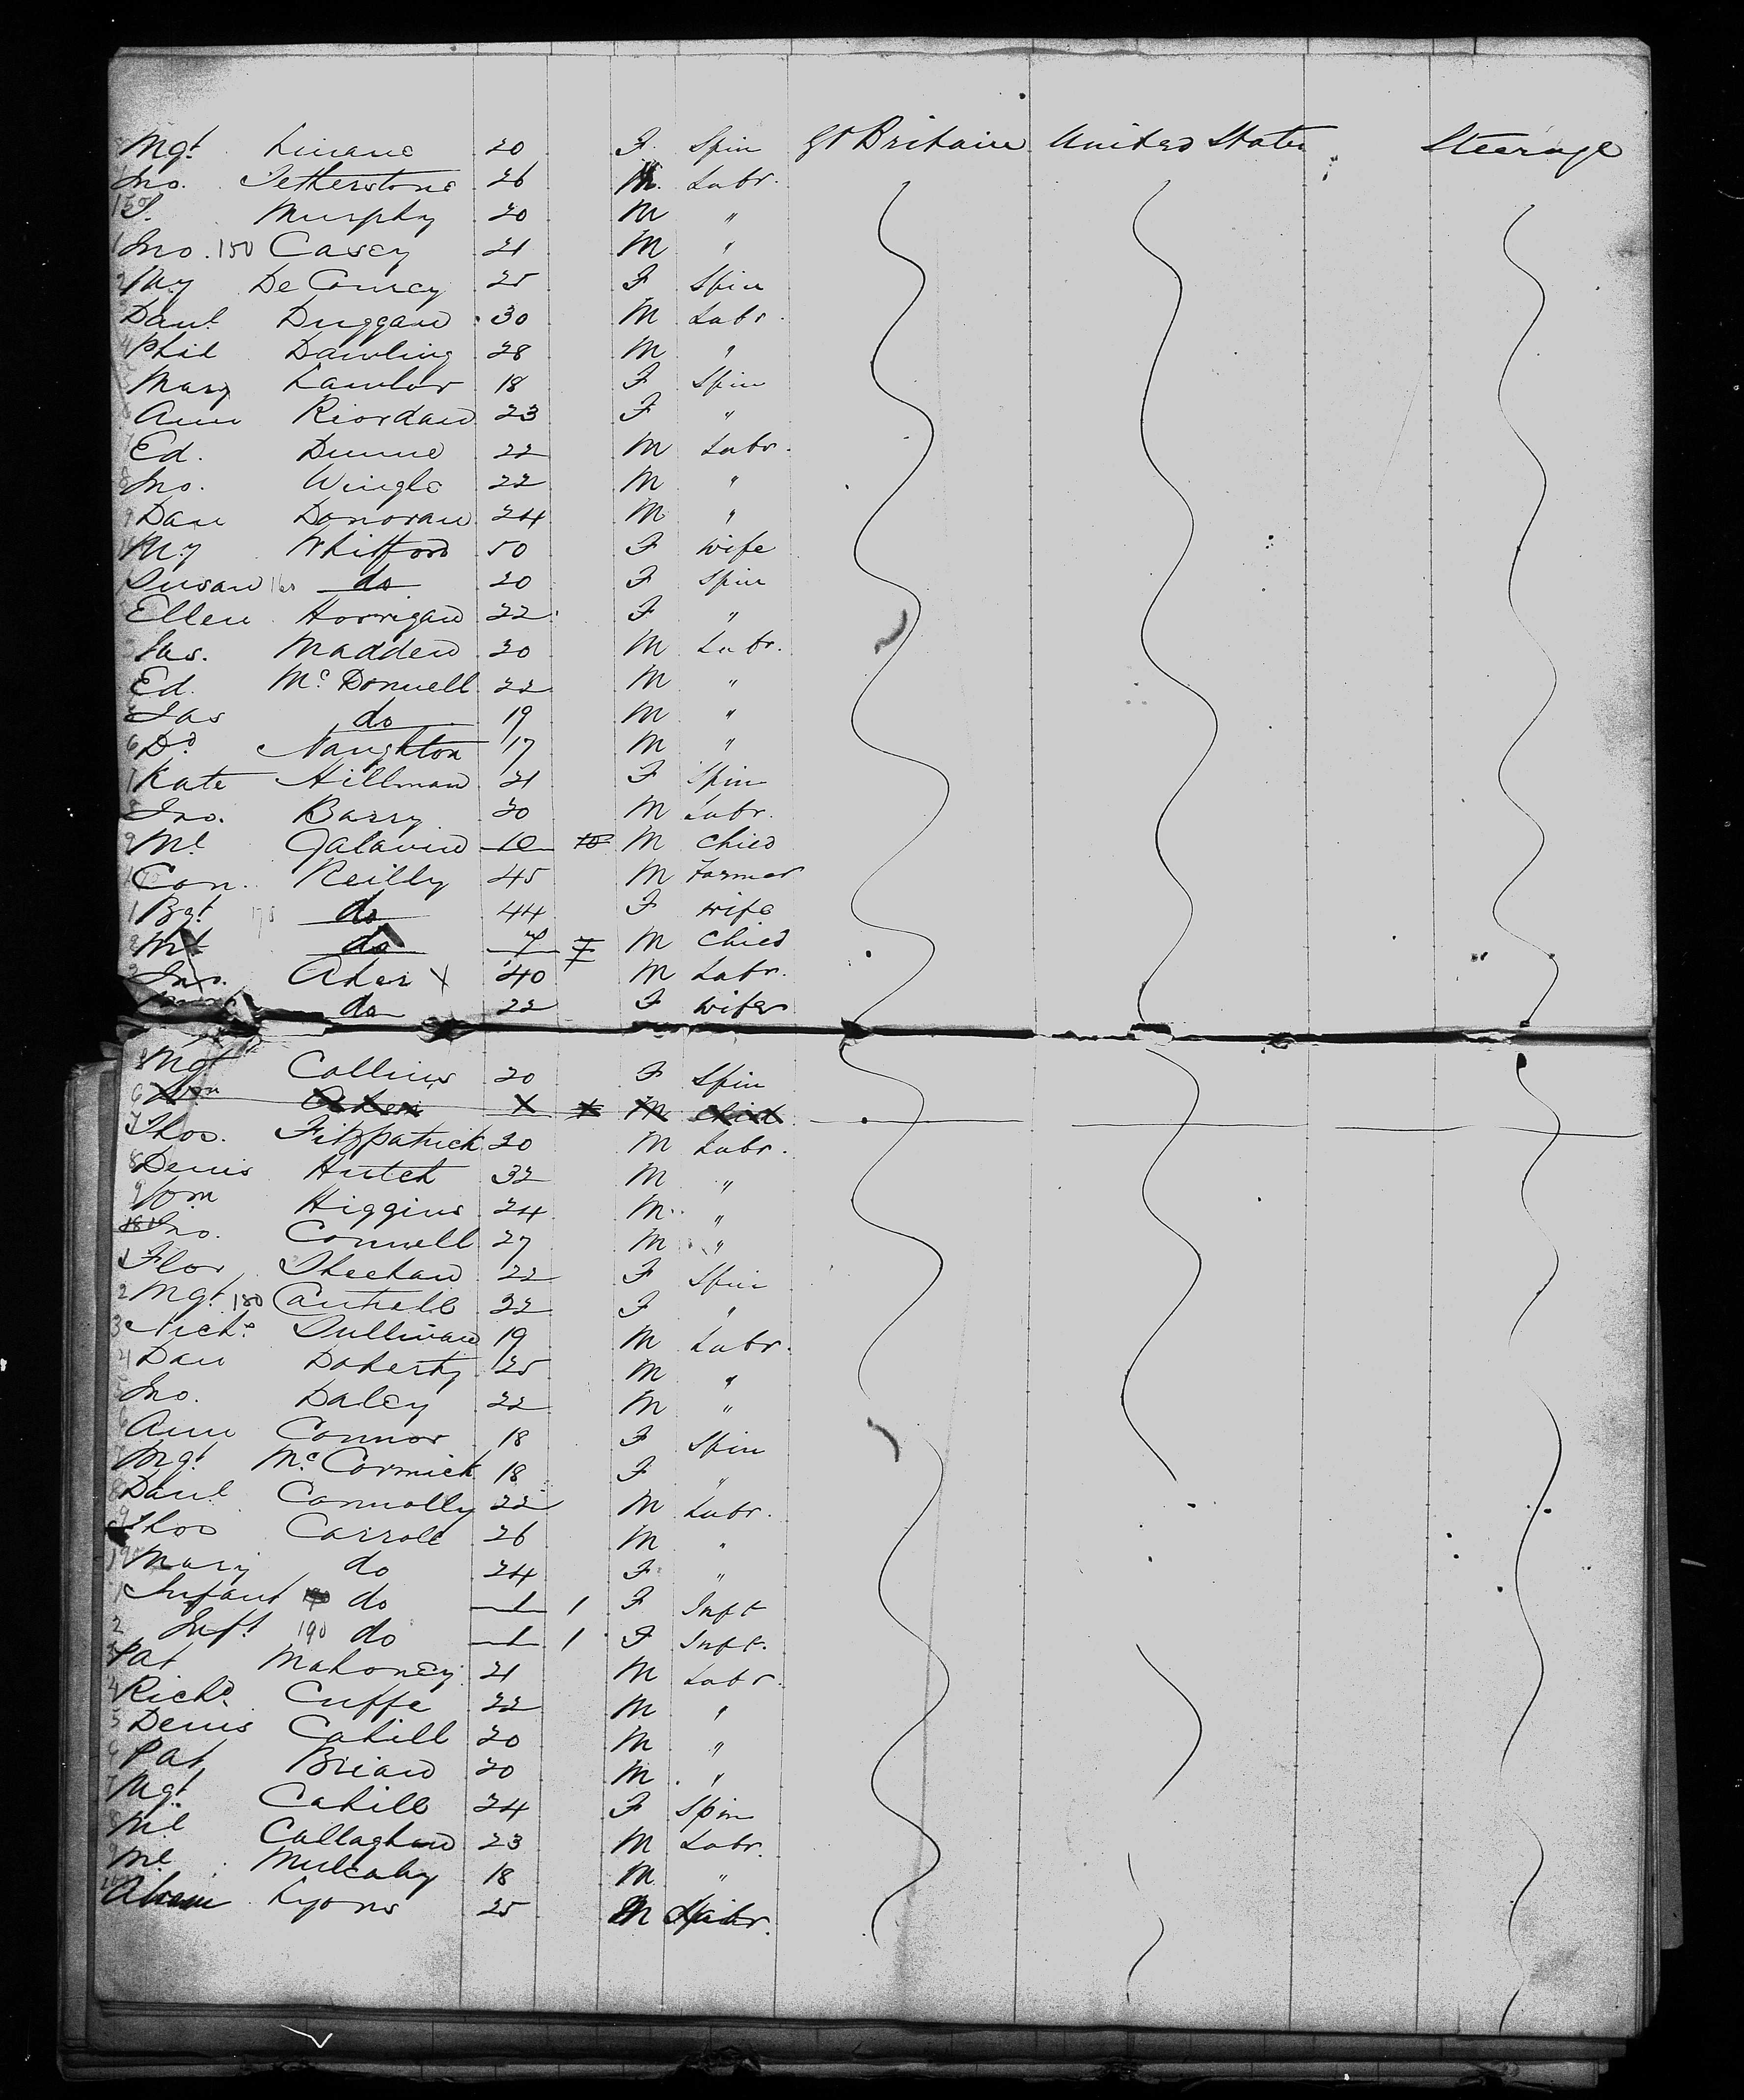 Mgt. Linane 20 F. Spin Gt Britain United States Steerage
Jno. Tetherstone 26 M. Labr.
Murphy 20 M "
1 Jno. 150 Casey 21 M "
2 My De Courcy 25 F Spin
Danl. Duggan 30 M Labr.
4 Phil Dawling 28 M "
Mary Lawlor 18 F Spin
Ann Riordan 23 F "
7 Ed. Dunne 22 M Labr.
8 Jno. Wingle 22 M "
9 Dan Donovan 24 M "
My Whitford 50 F Wife
Susan 160 do 20 F Spin
Ellen Horrigan 22 F "
Jas. Madden 20 M Labr.
Ed. Mc. Donnell 22 M "
Jas do 19 M "
6 Dd. Naughton 17 M "
7 Kate Hillman 21 F Spin
8 Jno. Barry 20 M Labr.
9 Ml Galavin 10 10 M Child
Con. Reilly 45 M Farmer
1 Bgt. 170 do 44 F Wife
2 Ml do 7 7 M Child
3 Jno. Aher X 40 M Labr.
do 22 F Wife
Mgt Collins 20 F Spin
6 Wm Aher X X M Child
7 Thos. Fitzpatrick 20 M Labr.
8 Denis Hutch 32 M "
9 Wm Higgins 24 M. "
Jno. Connell 27 M "
1 Flor Sheehan 22 F Spin
2 Mgt. 180 Cantrell 22 F "
3 Sullivan 19 M Labr.
4 Dan Doherty 25 M "
Jno. Daley 22 M "
6 Ann Connor 18 F Spin
7 Mgt. Mc. Cormick 18 F "
8 Danl. Connolly 22 M Labr.
9 Thos Carroll 26 M "
190 Mary do 24 F "
1 Infant do 1 1 F Inft
2 Inft. 190 do 1 1 F Inft.
Pat Mahoney 21 M Labr.
4 Richd. Cuffe 22 M "
5 Denis Cahill 20 M "
6 Pat Brian 20 M. "
7 Mgt. Cahill 24 F Spin
8 Ml Callaghan 23 M Labr.
Ml Mulcahy 18 M. "
Lyons 25 M Labr.